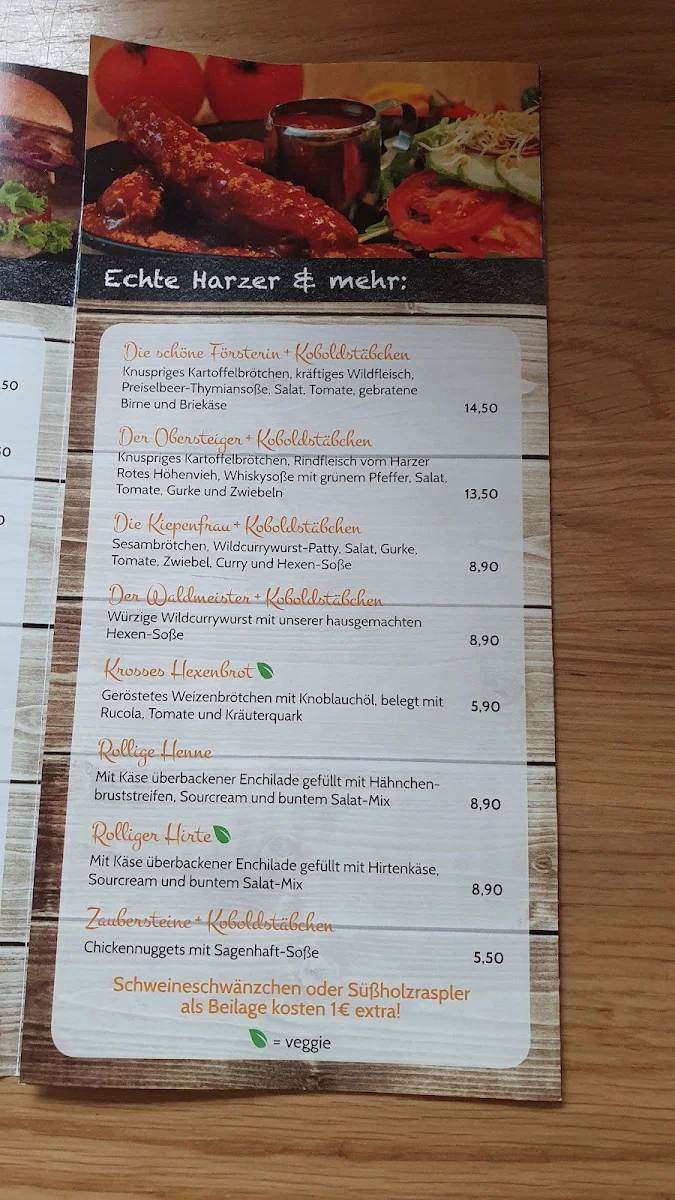 Echte Harzer & mehr:
Die schöne Försterin + Koboldstäbchen
Knuspriges Kartoffelbrötchen, kräftiges Wildfleisch,
Preiselbeer-Thymiansoße, Salat, Tomate, gebratene
Birne und Briekäse
14,50
Der Obersteiger + Koboldstäbchen
Knuspriges Kartoffelbrötchen, Rindfleisch vom Harzer
Rotes Höhenvieh, Whiskysoße mit grünem Pfeffer, Salat,
Tomate, Gurke und Zwiebeln
13,50
Die Kiepenfrau + Koboldstäbchen
Sesambrötchen, Wildcurrywurst-Patty, Salat, Gurke,
Tomate, Zwiebel, Curry und Hexen-Soße
8,90
Der Waldmeister + Koboldstäbchen
Würzige Wildcurrywurst mit unserer hausgemachten
Hexen-Soße
8,90
Krosses Hexenbrot
Geröstetes Weizenbrötchen mit Knoblauchöl, belegt mit
Rucola, Tomate und Kräuterquark
5,90
Rollige Henne
Mit Käse überbackener Enchilade gefüllt mit Hähnchen-
bruststreifen, Sourcream und buntem Salat-Mix
8,90
Rolliger Hirte
Mit Käse überbackener Enchilade gefüllt mit Hirtenkäse,
Sourcream und buntem Salat-Mix
8,90
Zaubersteine + Koboldstäbchen
Chickennuggets mit Sagenhaft-Soße
5,50
Schweineschwänzchen oder Süßholzraspler
als Beilage kosten 1€ extra!
= veggie